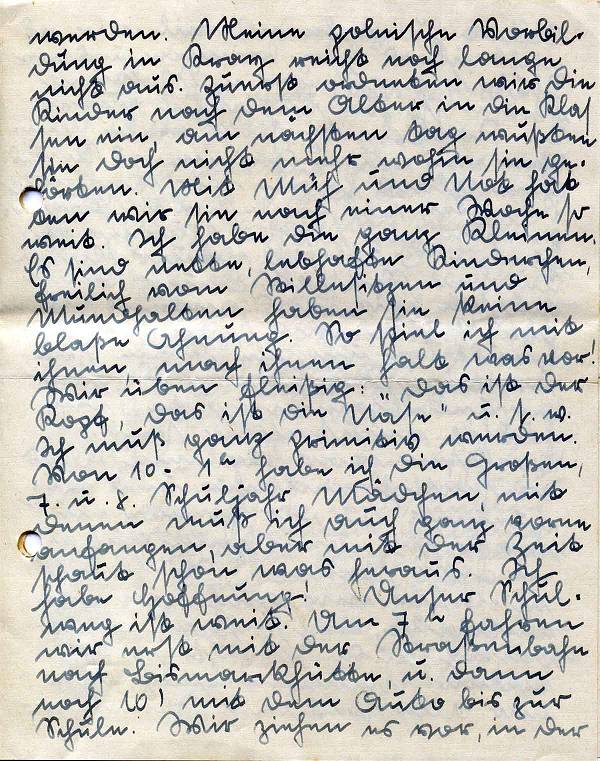 werden. Meine polnische Vorbil-
dung in Kray reicht noch lange
nicht aus. Zuerst ordneten wir die
Kinder nach dem Alter in die Klas
sen ein, am nächsten Tag wußten
sie doch nicht mehr wohin sie ge-
hörten. Mit Müh und Not hat
ten wir sie nach einer Woche so
weit. Ich habe die ganz Kleinen.
Es sind nette, lebhafte Kinderchen,
freilich vom Stillesitzen und
Mundhalten haben sie keine
blaße Ahnung. So spiel ich mit
ihnen, mach ihnen halt was vor!
Wir üben fleißig: "Das ist der
Kopf, das ist die Nase" u. s. w.
Ich muß ganz primitiv werden.
Von 10 - 1h habe ich die Großen,
7. u. 8. Schuljahr Mädchen, mit
denen muß ich auch ganz vorne
anfangen, aber mit der Zeit
schaut schon was heraus. Ich
habe Hoffnung! Unser Schul-
weg ist weit. Um 7h fahren
wir erst mit der Straßenbahn
nach Bismarckhütte, u. dann
noch 10' mit dem Auto bis zur
Schule. Wir ziehen es vor, in der